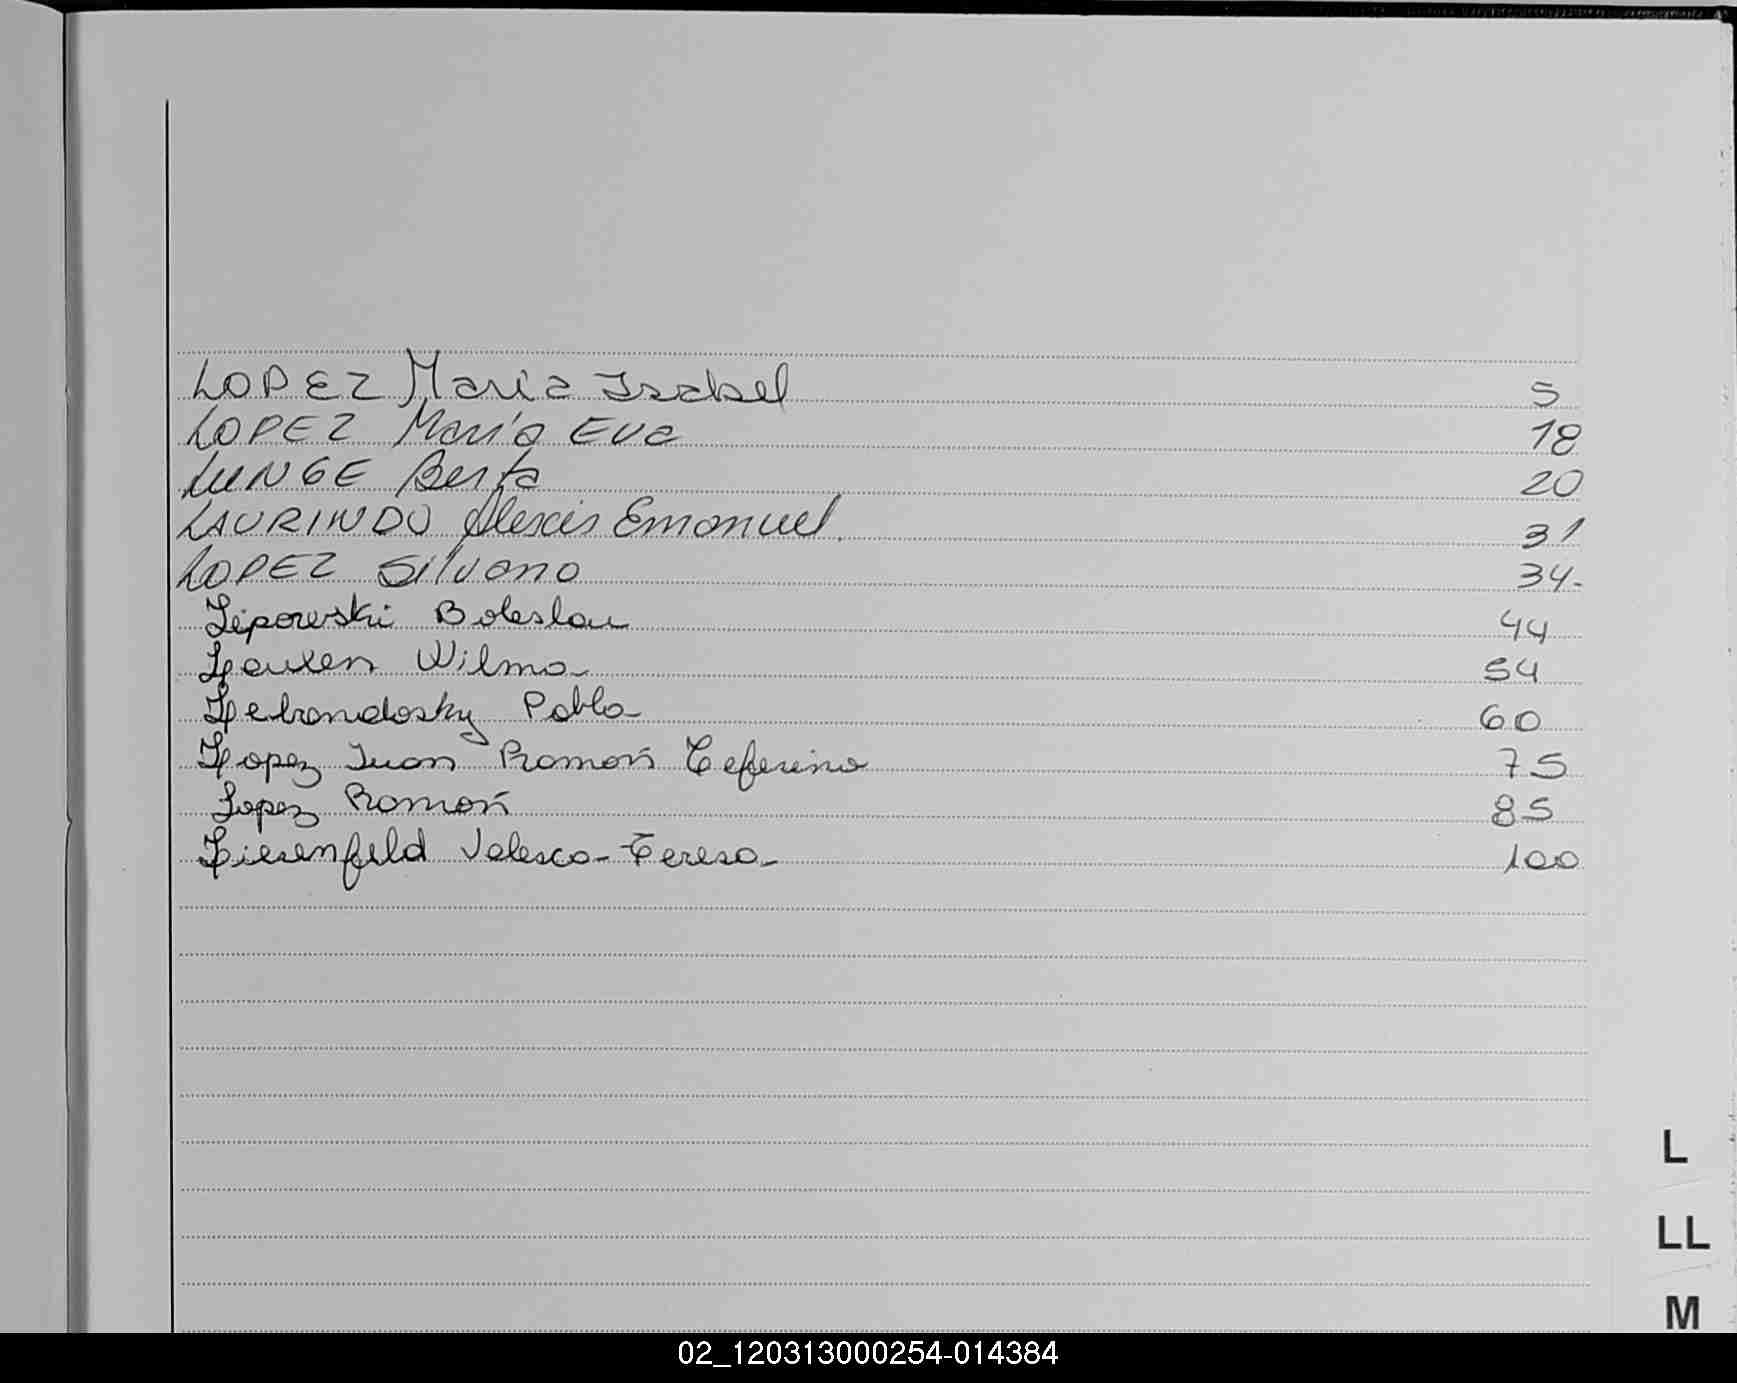 LOPEZ Maria Isabel 5
LOPEZ María Eva 18
LUNGE Berta 20
LAURINDO Alexis Emanuel. 31
LOPEZ Silvano 34-
Liporvski Boleslau 44
Lauxen Wilma 54
Lebrondosky Pablo 60
Lopez Juan Ramón Ceferino 75
Lopez Ramón 85
Liesenfeld Valesca-Teresa 100
L
LL
M
02_120313000254-014384